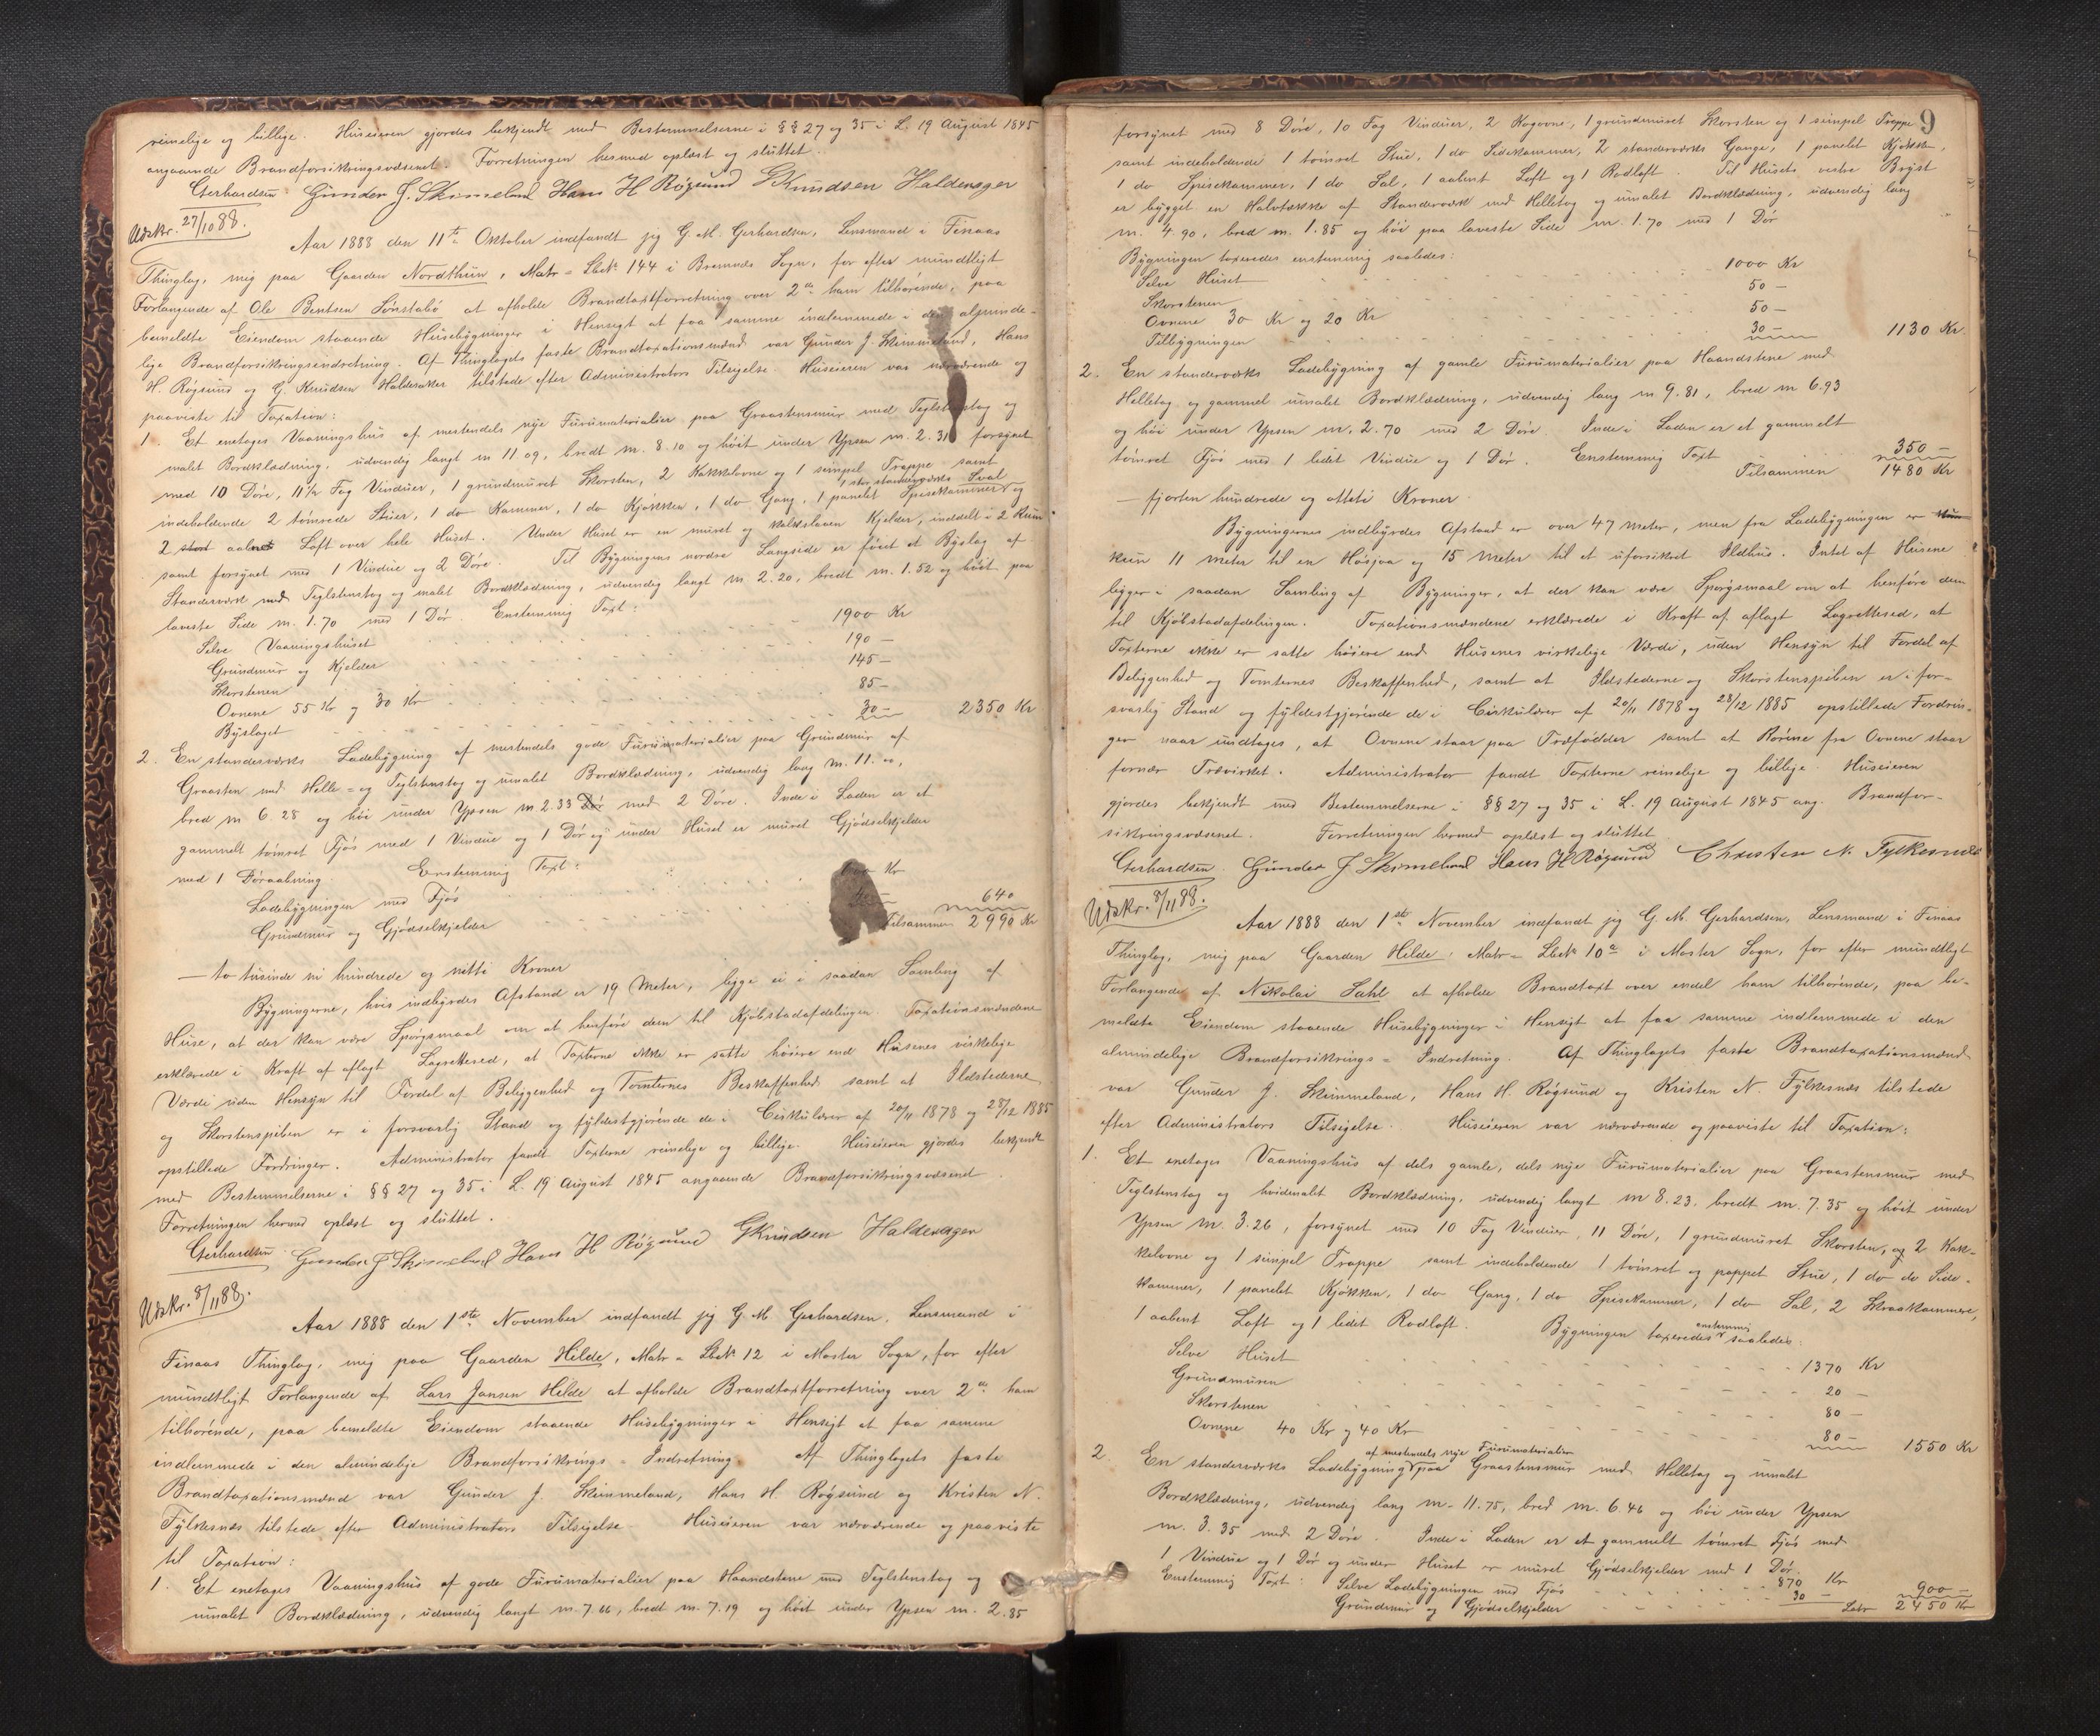 reimelige og billige. Huseieren gjordes bekjendt med Bestemmelserne i §§ 27 og 35 i L. 19 August 1845
angaaende Brandforsikringsvæsenet. Forretningen hermed oplæst og sluttet.
Gerhardsen Gunder J. Skimeland Hans H Røgsund GKnudsen Haldenager
Udskr. 27/10 88.
Aar 1888 den 11te Oktober indfandt jeg G. M. Gerhardsen, Lensmand i Finaas
Thinglag, mig paa Gaarden Nordthun, Matr = Lbnr 144 i Bremnæs Sogn, for efter mundtligt
Forlangende af Ole Bentsen Sønstabø at afholde Brandtaxtforretning over 2de ham tilhørende, paa
bemeldte Eiendom staaende Husebygninger i Hensigt at faa samme indlemmede i den alminde-
lige Brandforsikringsindretning. Af Thinglagets faste Brandtaxationsmænd var Gunder J. Skimmeland, Hans
H. Røgsund og G. Knudsen Haldenaker tilstede efter Administrators Tilsigelse. Huseieren var nærværende og
paaviste til Taxation:
1. Et enetages Vaaningshus af mestendels nye Furumaterialier paa Graastensmur med Teglstenstag og
malet Bordklædning, udvendig langt m 11 09, bredt m. 8.10 og høit under Ypsen m. 2.31 forsynet
med 10 Døre, 11½ Fag Vinduer, 1 grundmuret Skorsten, 2 Kakkelovne og 1 simpel Trappe samt
1 stor standerværks Sval
indeholdende 2 tømrede Stuer, 1 do Kammer, 1 do Kjøkken, 1 do Gang, 1 panelet Spisekammer og
2 stort aabent Loft over hele Huset. Under Huset er en muret og kalkslaaen Kjelder, inddelt i 2 Rum
samt forsynet med 1 Vindue og 2 Døre. Til Bygningens nordre Langside er føiet et Byslag af
Standerværk med Teglstenstag og malet Bordklædning, udvendig langt m 2.20, bredt m. 1.52 og høit paa
laveste Side m. 1.70 med 1 Dør Enstemmig Taxt:
Selve Vaaningshuset 1900 Kr
Grundmur og Kjelder 190 —
Skorstenen 145 —
Ovnene 55 Kr og 30 Kr 85 —
Byslaget 30 — 2350 Kr
2. En standerværks Ladebygning af mestendels gode Furumaterialier paa Grundmur af
Graasten med Helle = og Teglstenstag og umalet Bordklædning, udvendig lang m. 11.00,
bred m 6 28 og høi under Ypsen m 2.33 Dør med 2 Døre. Inde i Laden er et
gammelt tømret Fjøs med 1 Vindue og 1 Dør og under Huset er muret Gjødselkjelder
med 1 Døraabning. Enstemmig Taxt:
Ladebygningen med Fjøs 600 Kr
Grundmur og Gjødselkjelder 40 — 640
Tilsammen 2990 Kr
— to tusinde ni hundrede og nitti Kroner
Bygningerne, hvis indbyrdes Afstand er 19 Meter, ligge ei i saadan Samling af
Huse, at der kan være Spørgsmaal om at henføre dem til Kjøbstadafdelingen. Taxationsmændene
erklærede i Kraft af aflagt Lagrettesed, at Taxterne ikke er satte høiere end Husenes virkelige
Værdi uden Hensyn til Fordel af Beliggenhed og Tomternes Beskaffenhed samt at Ildstederne
og Skorstenspiben er i forsvarlig Stand og fyldestgjørende de i Cirkulærer af 20/11 1878 og 28/12 1885
opstillede Fordringer. Administrator fandt Taxterne reimelige og billige. Huseieren gjordes bekjendt
med Bestemmelserne i §§ 27 og 35 i L. 19 August 1845 angaaende Brandforsikringsvæsenet
Forretningen hermed oplæst og sluttet.
Gerhardsen Gunder J Skimeland Hans H Røgsund GKnudsen Haldenager
Udskr. 8/11 88.
Aar 1888 den 1ste November indfandt jeg G M Gerhardsen, Lensmand i
Finaas Thinglag, mig paa Gaarden Hilde, Matr = Lbnr 12 i Moster Sogn, for efter
mundtligt Forlangende af Lars Jansen Hilde at afholde Brandtaxtforretning over 2de ham
tilhørende, paa bemeldte Eiendom staaende Husebygninger i Hensigt at faa samme
indlemmede i den almindelige Brandforsikrings = Indretning. Af Thinglagets faste
Brandtaxationsmænd var Gunder J. Skimmeland, Hans H. Røgsund og Kristen N.
Fylkesnæs tilstede efter Administrators Tilsigelse. Huseieren var nærværende og paaviste
til Taxation:
1. Et enetages Vaaningshus af gode Furumaterialier paa Haandstene med Teglstenstag og
umalet Bordklædning, udvendig langt m. 7.66, bredt m. 7.19 og høit under Ypsen m. 2.85
9
forsynet med 8 Døre, 10 Fag Vinduer, 2 Kogovne, 1 grundmuret Skorsten og 1 simpel Trappe
samt indeholdende 1 tømret Stue, 1 do Sidekammer, 2 standerværks Gange, 1 panelet Kjøkken,
1 do Spisekammer, 1 do Sal, 1 aabent Loft og 1 Rodloft. Til Husets vestre Bryst
er bygget en Halvtække af Standerværk med Helletag og umalet Bordklædning, udvendig lang
m. 4.90, bred m. 1.85 og høi paa laveste Side m. 1.70 med 1 Dør
Bygningen taxeredes enstemmig saaledes:
Selve Huset 1000 Kr
Skorstenen 50 —
Ovnene 30 Kr og 20 Kr 50 —
Tilbygningen 30 — 1130 Kr.
2. En standerværks Ladebygning af gamle Furumaterialier paa Haandstene med
Helletag og gammel umalet Bordklædning, udvendig lang m 9.81, bred m 6.93
og høi under Ypsen m. 2.70 med 2 Døre. Inde i Laden er et gammelt
tømret Fjøs med 1 ledet Vindue og 1 Dør. Enstemmig Taxt 350 —
Tilsammen 1480 Kr
— fjorten hundrede og otteti Kroner.
Bygningernes indbyrdes Afstand er over 47 Meter, men fra Ladebygningen er
kun 11 Meter til en Høsjaa og 15 Meter til et uforsikret Ildhus. Intet af Husene
ligger i saadan Samling af Bygninger, at der kan være Spørgsmaal om at henføre dem
til Kjøbstadafdelingen. Taxationsmændene erklærede i Kraft af aflagt Lagrettesed, at
Taxterne ikke er satte høiere end Husenes virkelige Værdi, uden Hensyn til Fordel af
Beliggenhed og Tomternes Beskaffenhed, samt at Ildstederne og Skorstenspiben er i for-
svarlig Stand og fyldestgjørende de i Cirkulærer af 20/11 1878 og 28/12 1885 opstillede Fordrin-
ger naar undtages, at Ovnene staar paa Træfødder samt at Rørene fra Ovnene staar
fornær Træværket. Administrator fandt Taxterne reimelige og billige. Huseieren
gjordes bekjendt med Bestemmelserne i §§ 27 og 35 i L. 19 August 1845 ang. Brandfor-
sikringsvæsenet. Forretningen hermed oplæst og sluttet
Gerhardsen Gunder J Skimeland Hans H Røgsund Christen N. Fylkesnæs
Udskr. 8/11 88.
Aar 1888 den 1ste November indfandt jeg G. M. Gerhardsen, Lensmand i Finaas
Thinglag, mig paa Gaarden Hilde, Matr = Lbnr 10a i Moster Sogn, for efter mundtligt
Forlangende af Nikolai Dahl at afholde Brandtaxt over endel ham tilhørende, paa be-
meldte Eiendom staaende Husebygninger i Hensigt at faa samme indlemmede i den
almindelige Brandforsikrings = Indretning. Af Thinglagets faste Brandtaxationsmænd
var Gunder J. Skimmeland, Hans H. Røgsund og Kristen N. Fylkesnæs tilstede
efter Administrators Tilsigelse. Huseieren var nærværende og paaviste til Taxation:
1. Et enetages Vaaningshus af dels gamle, dels nye Furumaterialier paa Graastensmur med
Teglstenstag og hvidmalet Bordklædning, udvendig langt m 8.23, bredt m. 7.35 og høit under
Ypsen m. 3.26, forsynet med 10 Fag Vinduer, 11 Døre, 1 grundmuret Skorsten, og 2 Kak-
kelovne og 1 simpel Trappe samt indeholdende 1 tømret og pappet Stue, 1 do do Side-
kammer, 1 panelet Kjøkken, 1 do Gang, 1 do Spisekammer, 1 do Sal, 2 Skraakammere,
1 aabent Loft og 1 ledet Rodloft. Bygningen taxeredes enstemmig saaledes:
Selve Huset 1370 Kr
Grundmuren 20 —
Skorstenen 80 —
Ovnene 40 Kr og 40 Kr 80 — 1550 Kr
2. En standerværks Ladebygning af mestendels nye Furumaterialier paa Graastensmur med Helletag og umalet
Bordklædning, udvendig lang m. 11.75, bred m. 6.46 og høi under Ypsen
m. 3.35 med 2 Døre. Inde i Laden er et gammelt tømret Fjøs med
1 Vindue og 1 Dør og under Huset er muret Gjødselkjelder med 1 Dør.
Enstemmig Taxt: Selve Ladebygningen med Fjøs 870 Kr
Grundmur og Gjødselkjelder 30 — 900 —
Latr 2450 Kr